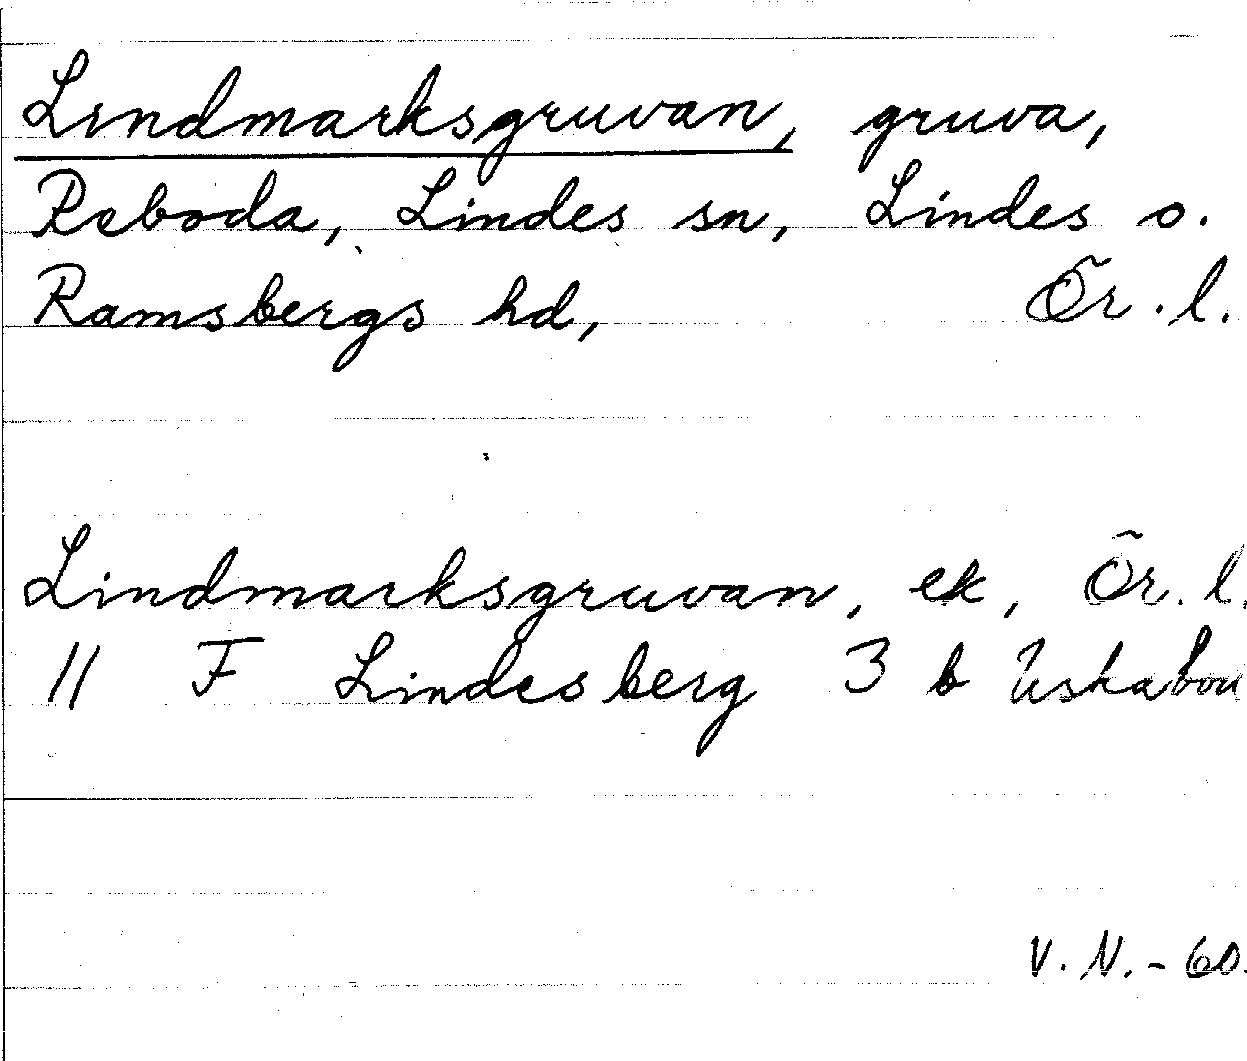 Lindmarksgruvan, gruva,
Reboda, Lindes sn, Lindes o.
Ramsbergs hd, Ör. l.
Lindmarksgruvan, ek, Ör. l.
11 F Lindesberg 3 b Uskabou
V. N. - 60.